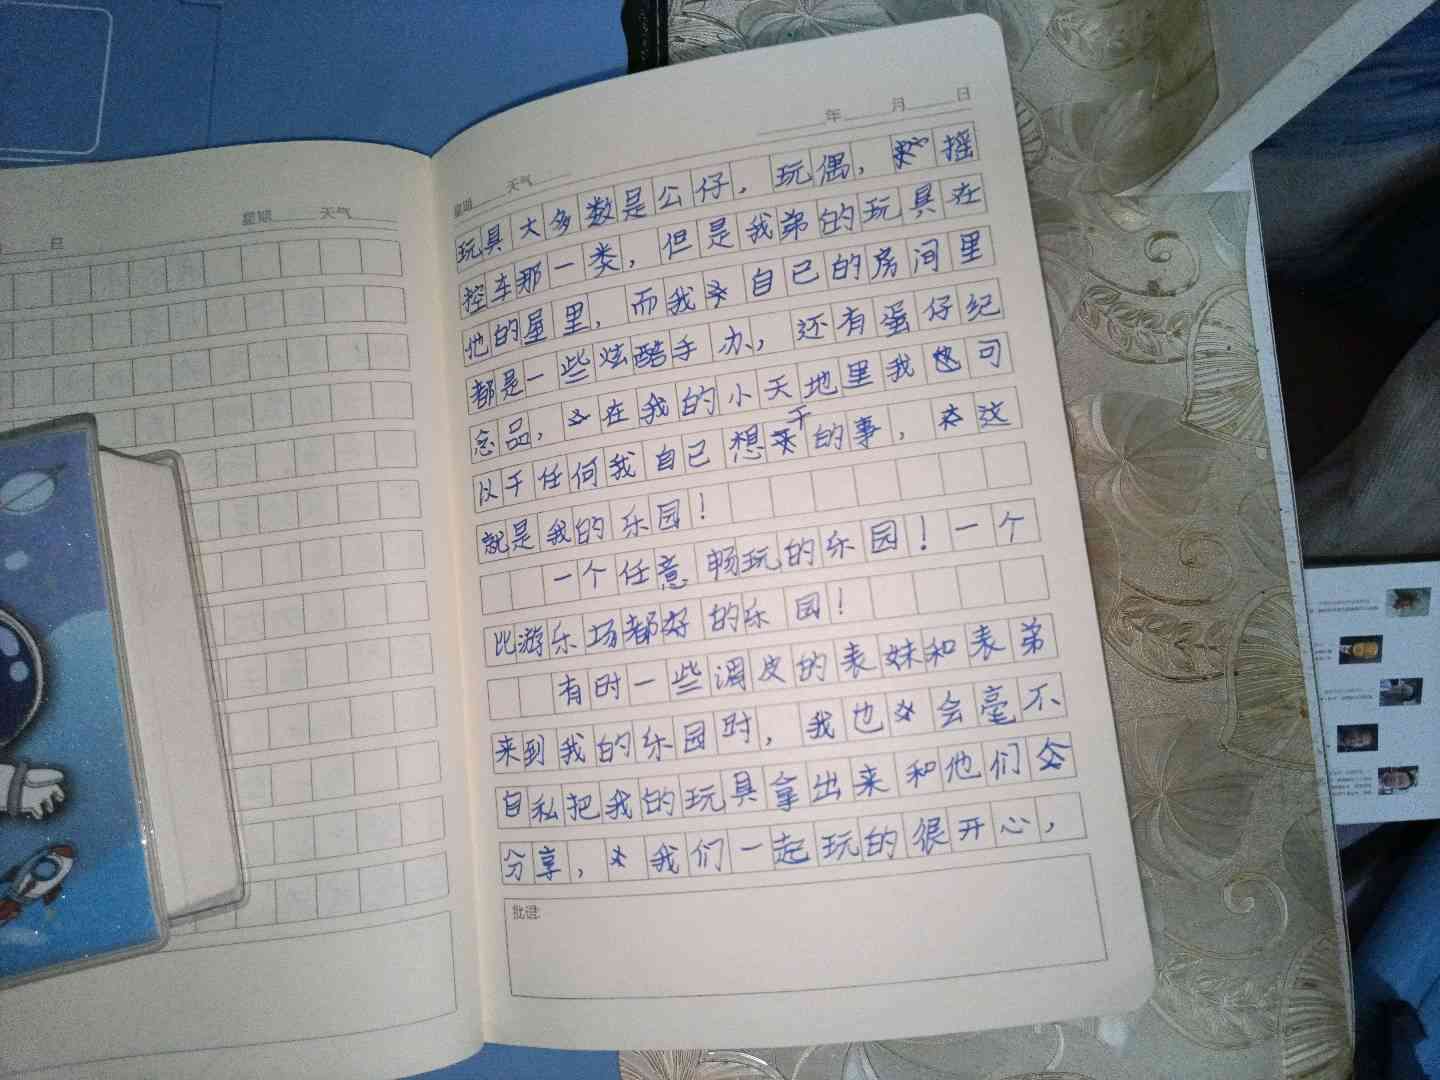 年 月 日
星期 天气
星期 天气
日
玩具大多数是公仔，玩偶，摇
控车那一类，但是我弟的玩具在
他的屋里，而我自己的房间里
都是一些炫酷手办，还有蛋仔纪
念品，在我的小天地里我也可
以干任何我自己想干的事，这
就是我的乐园！
一个任意畅玩的乐园！一个
比游乐场都好的乐园！
有时一些调皮的表妹和表弟
来到我的乐园时，我也会毫不
自私把我的玩具拿出来和他们
分享，我们一起玩的很开心，
批语: